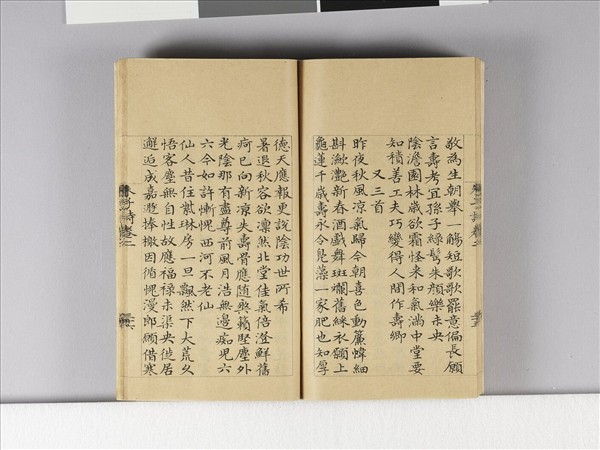 敬為生朝舉一觴短歌歌罷意偏長願
言壽考宜孫子綠髩朱顏樂未央
陰澹園林歲欲霜怪來和氣滿中堂要
知積善工夫巧變得人間作壽鄉
又三首
昨夜秋風凉氣歸今朝喜色動簾幃細
斟瀲灔新春酒戲舞斑斕舊綵衣願上
龜蓮千歲壽永令見藻一家肥也知厚
德天應報更說陰功世所希
暑退秋容欲凛然北堂佳氣倍澄鮮舊
痾已向新凉失壽骨應随爽籟堅塵外
光陰那有盡尊前風月浩無邊痴兒六
六今如許慚愧西河不老仙
仙人昔住蘂珠房一旦飄然下大荒久
悟客塵無自性故應福禄未渠央徙居
邂逅成嘉遯捧檄因循愧漫郎願借寒